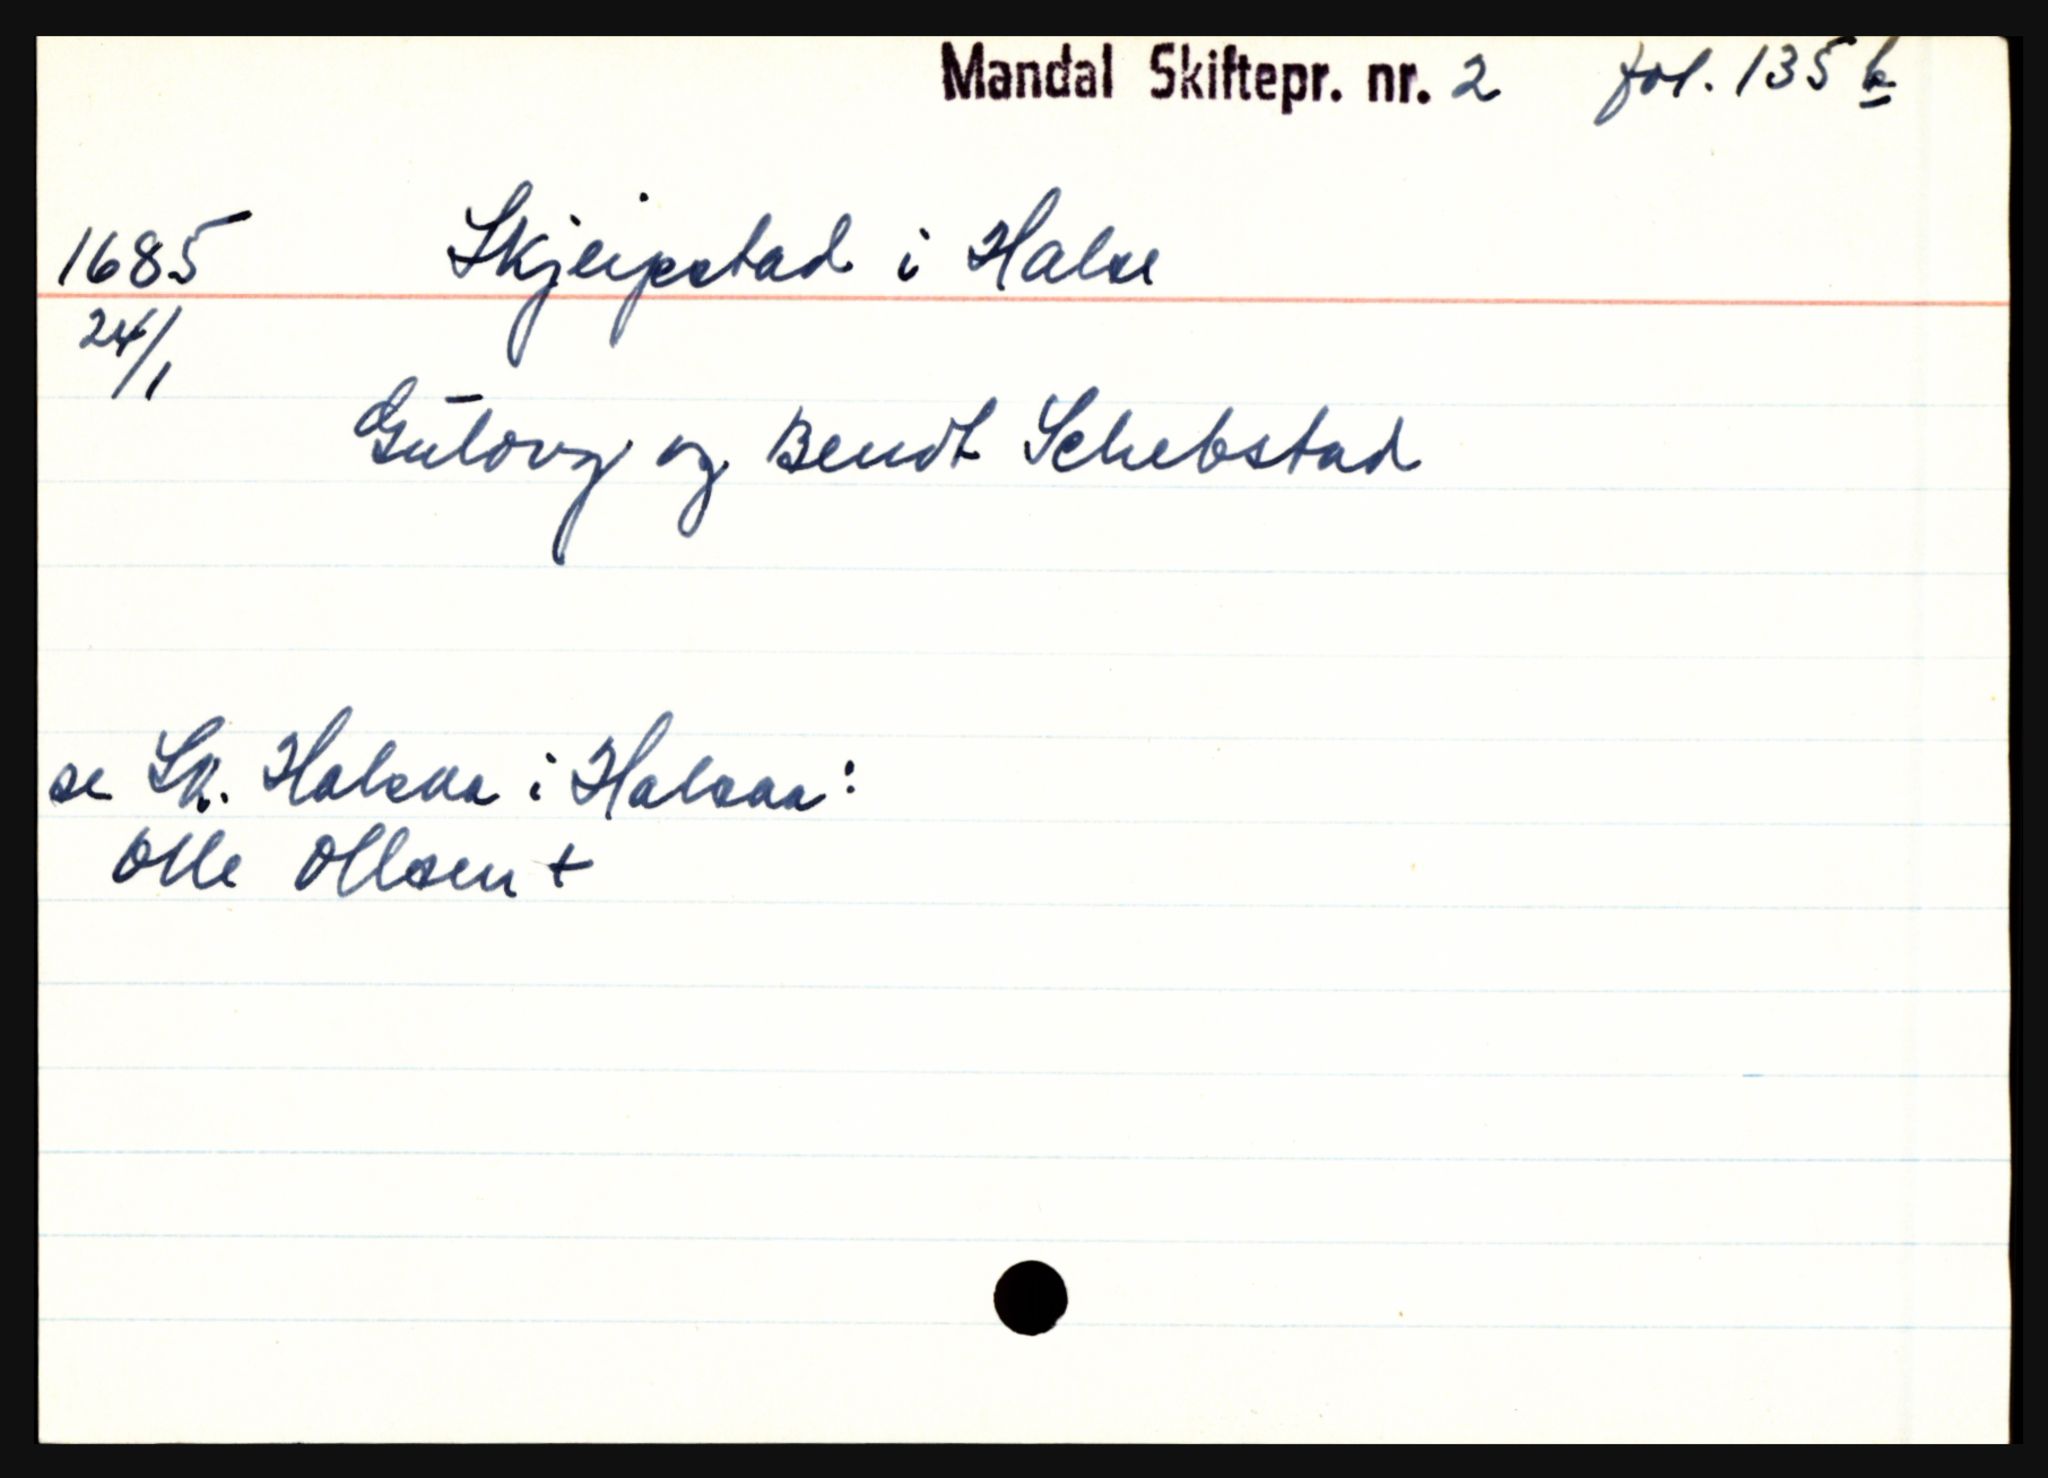 Mandal Skiftepr. nr. 2 fol. 135 b
1685 Skjeipstad i Halse
24/1
Gulovg og Bendt Schebstad
se Sk. Halsaa i Halsaa:
Olle Ollsen +